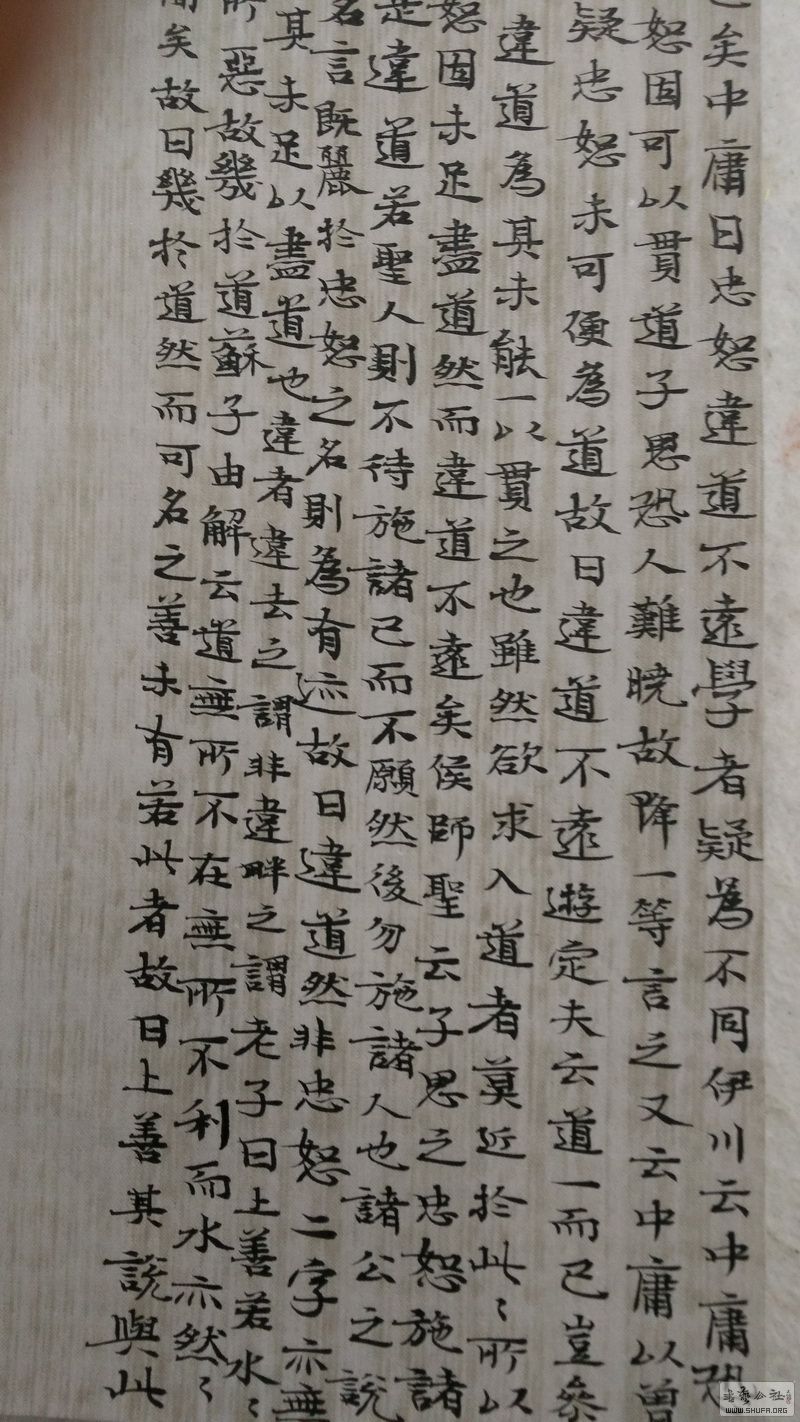 矣中庸曰忠恕違道不遠學者疑為不同伊川云中庸恐
恕固可以貫道子思恐人難曉故降一等言之又云中庸以曾
疑忠恕未可便為道故曰違道不遠遊定夫云道一而已豈參
違道為其未能一以貫之也雖然欲求入道者莫近於此〻所以
恕固未足盡道然而違道不遠矣侯師聖云子思之忠恕施諸
是違道若聖人則不待施諸己而不願然後勿施諸人也諸公之說
名言既麗於忠恕之名則為有迹故曰違道然非忠恕二字亦無
其未足以盡道也違者違去之謂非違畔之謂老子曰上善若水〻
所惡故幾於道蘇子由解云道無所不在無所不利而水亦然〻
矣故曰幾於道然而可名之善未有若此者故曰上善其說與此
書法公社
WWW.SHUFA.ORG